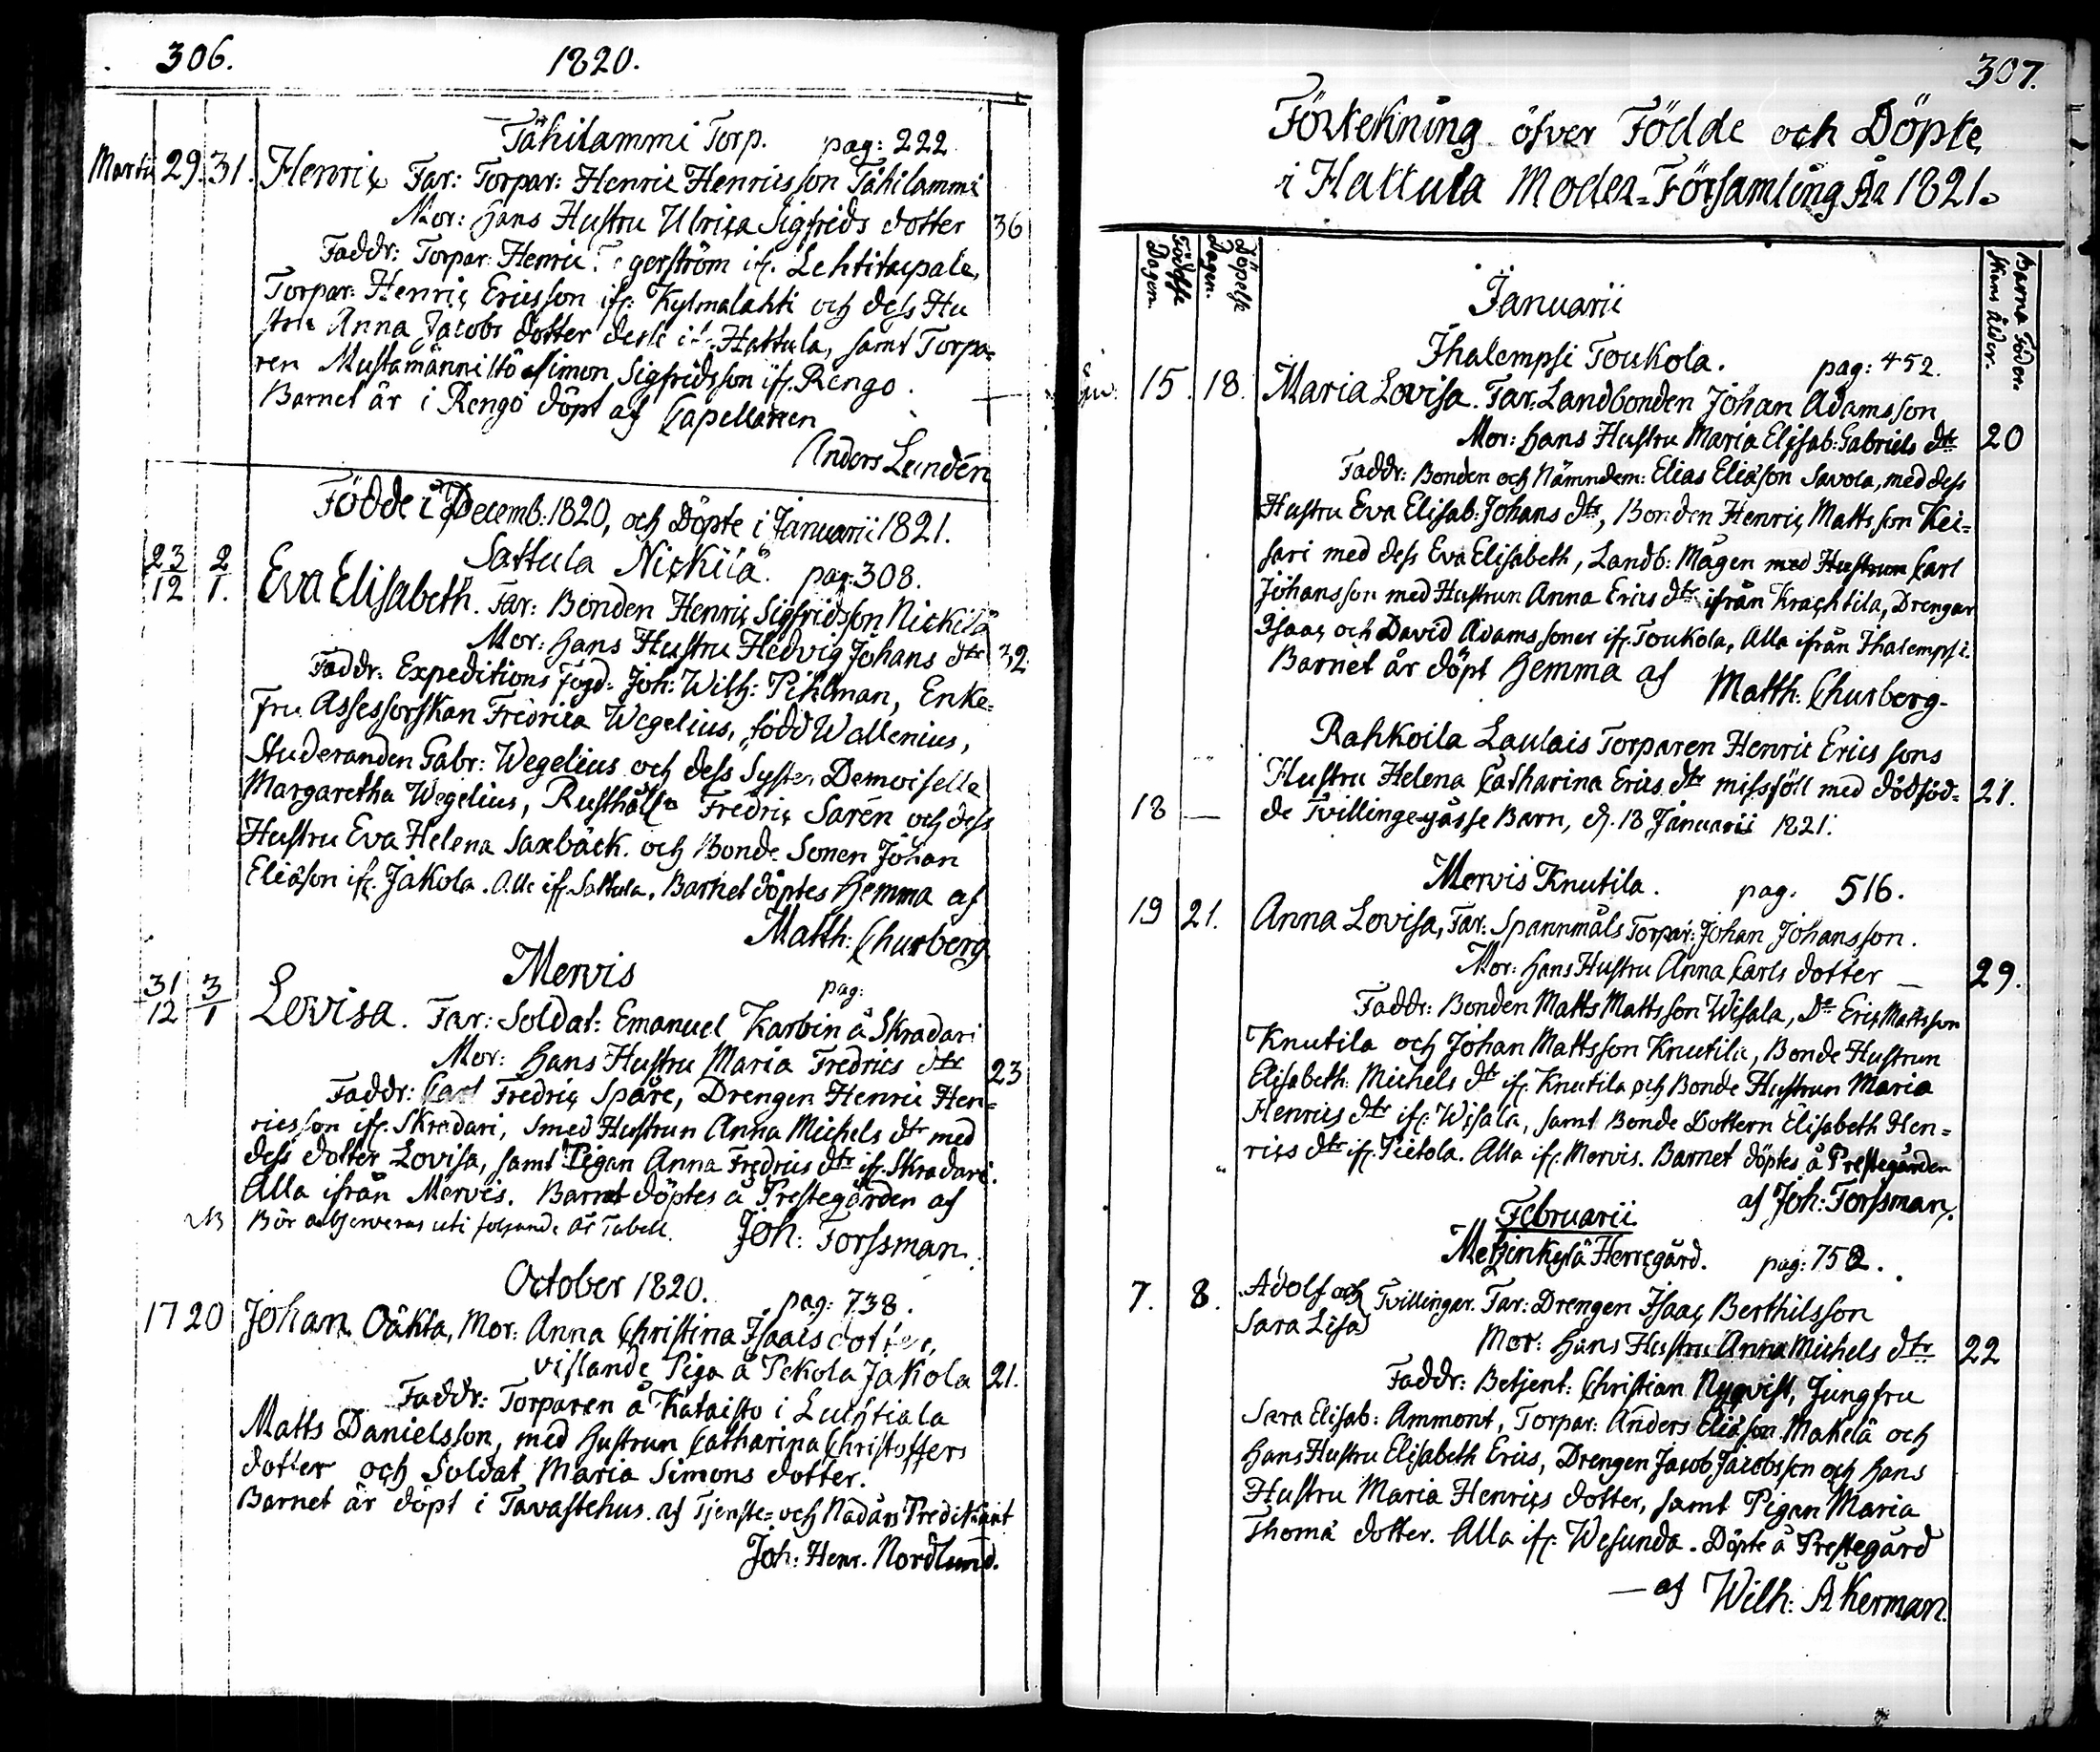 306.
1820.
Tähilammi Torp. pag: 222
Martii 29. 31. Henric Far: Torpar: Henric Henricsson Tähilammi
Mor: hans Hustru Ulrica Sigfrids dotter 36
Faddr: Torpar: Henric if. Lehtitaipale,
Torpar: Henric Ericsson ifr: Kylmälahti och dess Hu
stru Anna Jacobs dotter Hattula, samt Torpa=
ren Mustamännistö Simon Sigfridsson if. Rengo.
Barnet är i Rengo döpt af Capellanen
Anders Lundén
Födde i Decemb: 1820, och Döpte i Januarii 1821.
Sattula Nickilä. pag: 308.
23/12 2/1. Eva Elisabeth. Far: Bonden Henric Sigfridsson Nickilä
Mor: hans Hustru Hedvig Johans dtr 32.
Faddr: Expeditions Fogd: Joh: Wilh: Pihlman, Enke=
fru Assessorskan Fredrica Wegelius, född Wallenius,
Studeranden Gabr: Wegelius och dess Syster Demoiselle
Margaretha Wegelius, Rusthåll: Fredric Sarén och dess
Hustru Eva Helena Saxbäck. och Bonde Sonen Johan
Eliäson if. Jakola. Alle if. Sattula. Barnet döptes hemma af
Matth: Churberg.
Mervis
pag:
31/12 3/1 Lovisa. Far: Soldat: Emanuel Karbin å Skradari
Mor: hans Hustru Maria Fredrics dtr 23
Faddr: Carl Fredric Spåre, Drengen Henric Hen=
ricsson if. Skradari, Smed Hustrun Anna Michels dtr med
dess dotter Lovisa, samt Pigan Anna Fredrics dtr if. Skradari.
Alla ifrån Mervis. Barnet döptes å Prestegården af
NB Bör observeras uti följande års Tabell. Joh: Forssman.
October 1820.
pag: 738.
17 20 Johan Oäkta, Mor: Anna Christina Isaacs dotter,
vistande Piga å Pekola Jakola 21.
Faddr: Torparen å Kataisto i Luhtiala
Matts Danielsson, med hustrun Catharina Christoffers
dotter och Soldat Maria Simons dotter.
Barnet är döpt i Tavastehus. af Tjenste= och Nådårs Predikant
Joh: Henr. Nordlund.
307.
Förtekning öfver Födde och Döpte
i Hattula Moder=Församling År 1821.
Födelse Dagen. Döpelse Dagen. Barna Föder skans ålder.
Januarii
Ihalempsi Toukola. pag: 452.
15. 18. Maria Lovisa. Far: Landbonden Johan Adamsson
Mor: hans Hustru Maria Elisab: Gabriels dtr 20
Faddr: Bonden och Nämndem: Elias Eliäson Savola, med dess
Hustru Eva Elisab: Johans dtr, Bonden Henric Mattsson Kei=
sari med dess Eva Elisabeth, Landb: Mågen med Hustrun Carl
Johansson med Hustrun Anna Erics dtr ifrån Krachtila, Drengar
Isaac och David Adams söner if. Toukola, Alla ifrån Ihalempsi.
Barnet är döpt hemma af Matth: Churberg.
Rahkoila Laulais Torparen Henric Erics sons
Hustru Helena Catharina Erics dtr missföll med dödföd= 21.
18 — de Tvillinge gåsse Barn, d. 18 Januarii 1821.
Mervis Knutila. pag. 516.
19 21. Anna Lovisa, Far: Spannmåls Torpar: Johan Johansson.
Mor: hans Hustru Anna Carls dotter — 29.
Faddr: Bonden Matts Mattsson Wisala, Do Eric Mattsson
Knutila och Johan Mattsson Knutila, Bonde Hustrun
Elisabeth Michels dtr if. Knutila och Bonde Hustrun Maria
Henrics dtr if. Wisala, samt Bonde Dottern Elisabeth Hen=
rics dtr if. Pietola. Alla if. Mervis. Barnet döptes å Prestegården
af Joh: Forssman.
Februarii
Metzinkylä Herregård. pag: 752.
7. 8. Adolf och Tvillingar. Far: Drengen Isaac Berthilsson
Sara Lisa
Mor: hans Hustru Anna Michels dtr 22
Faddr: Betjent: Christian Nyqvist, Jungfru
Sara Elisab: Ammont, Torpar: Anders Eliäson Makelä och
hans Hustru Elisabeth Erics, Drengen Jacob Jacobsson och hans
Hustru Maria Henrics dotter, samt Pigan Maria
Thomä dotter. Alla if. Wesunda. Döpte å Prestegård
— af Wilh: Åkerman.